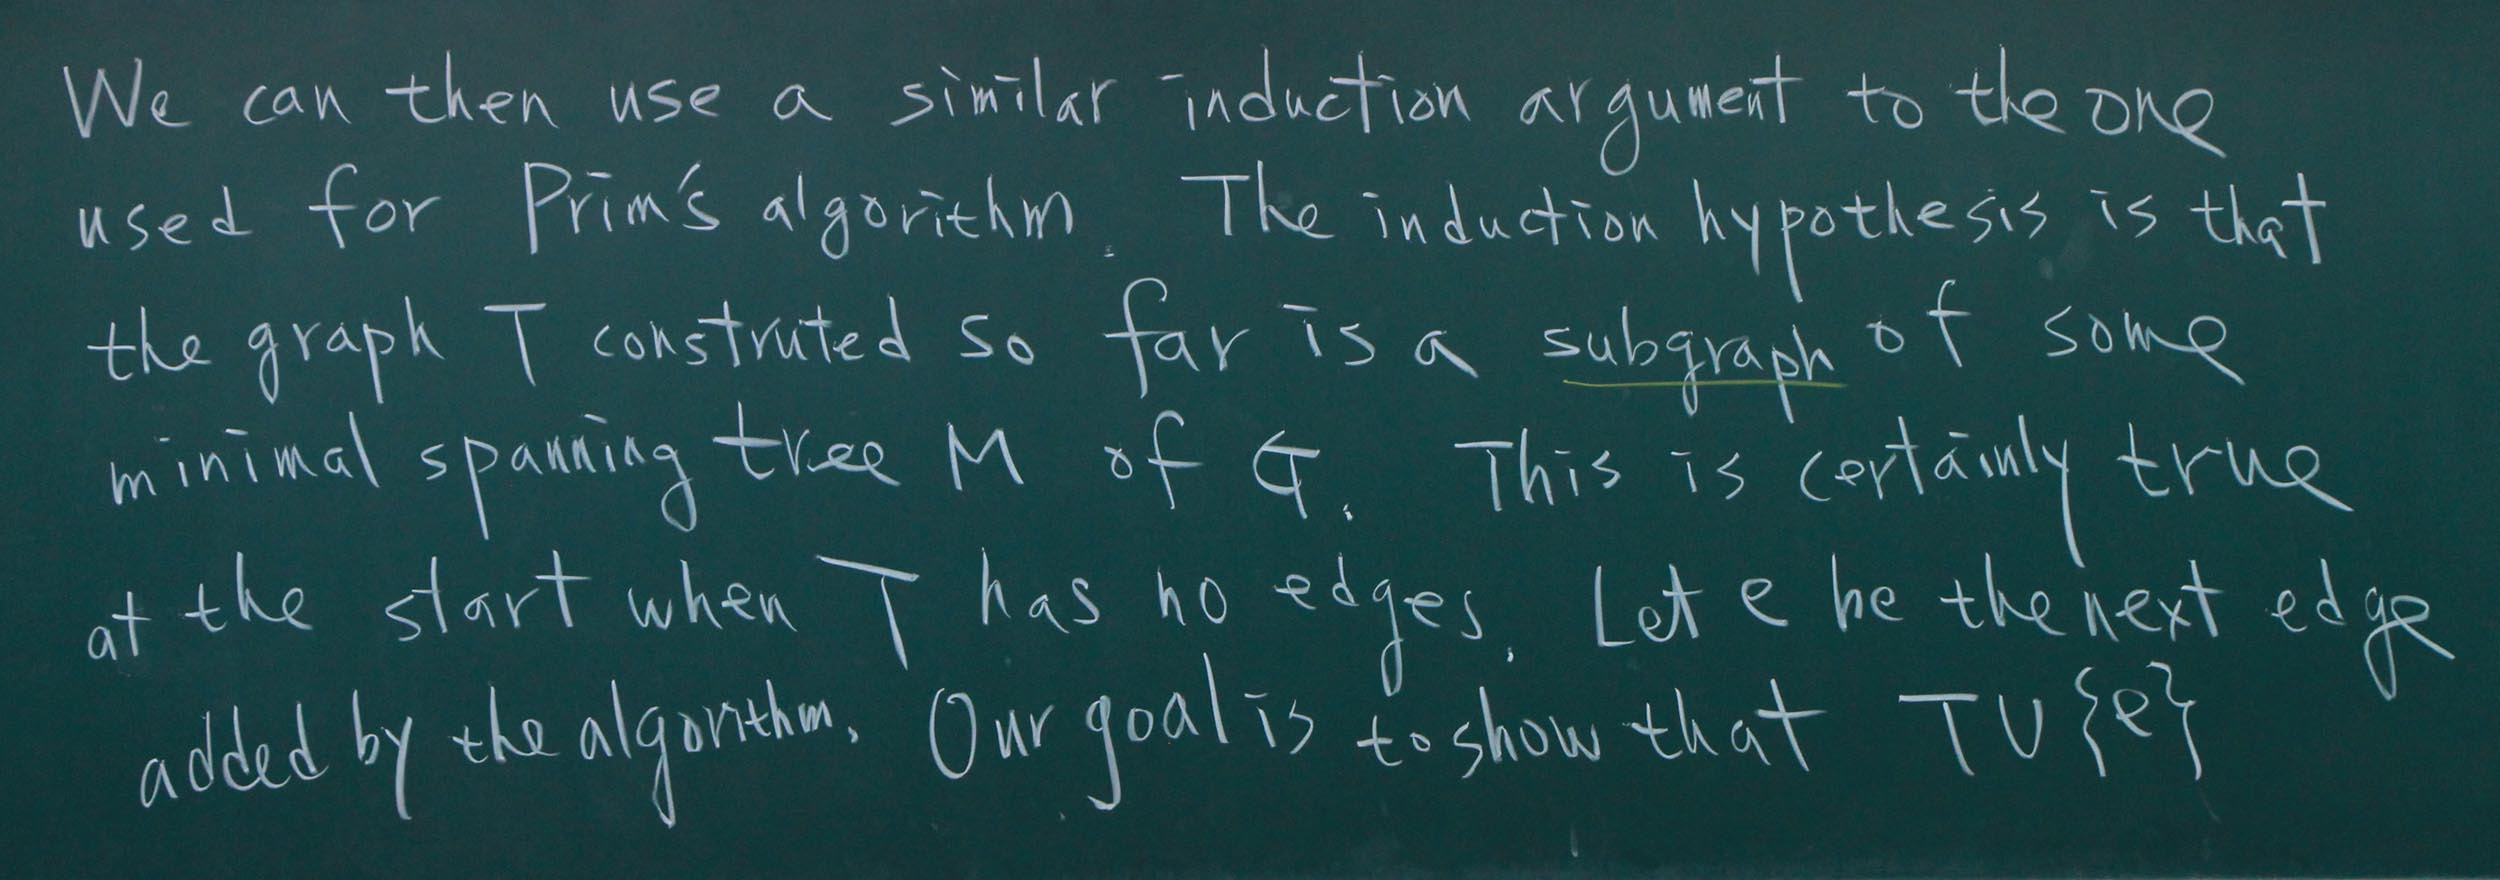 We can then use a similar induction argument to the one
used for Prim's algorithm. The induction hypothesis is that
the graph T construted so far is a subgraph of some
minimal spanning tree M of G. This is certainly true
at the start when T has no edges. Let e be the next edge
added by the algorithm. Our goal is to show that T∪{e}